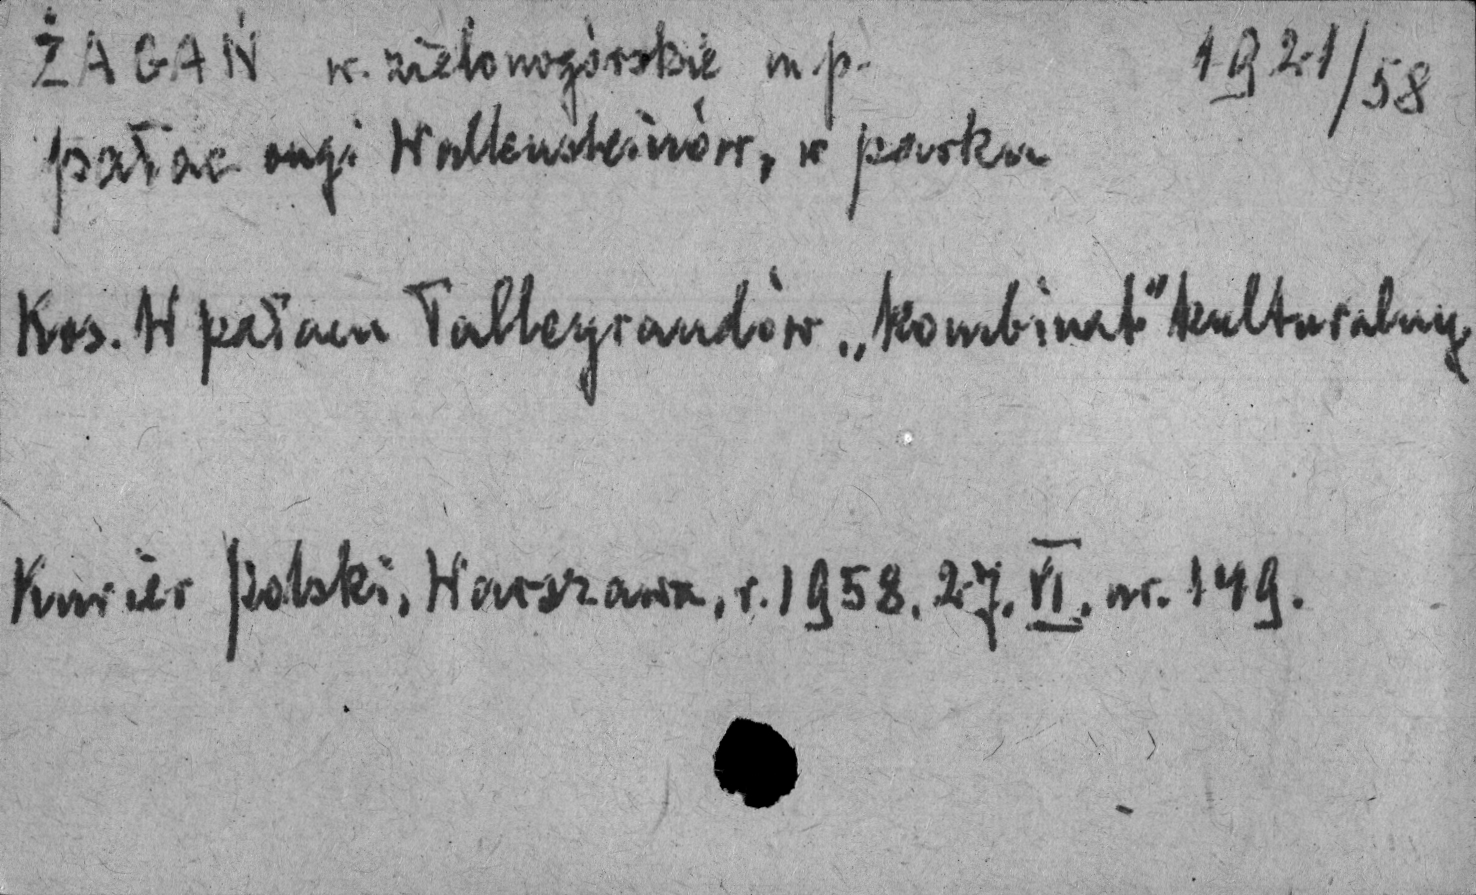 ŻAGAŃ w. zielonogórskie m.p. 1921/58
pałac ongi Wallensteinów, w parku
Kos. W pałacu Talleyrandów „kombinat" kulturalny.
Kurier Polski, Warszawa, r. 1958. 27. VI. nr. 149.